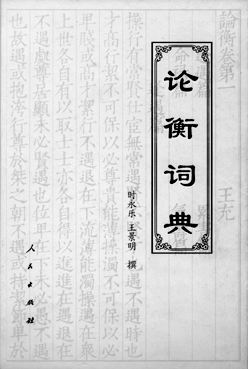 論衡卷第一
王充
操行有常賢仕宦無常遇
遇不遇時也
才高行潔不可保以必尊貴能薄操濁不可保以必
卑賤或高才潔行不遇退在下流薄能濁操遇在衆
上世各自有以取士士亦各自得以進進在遇退在
不遇處尊居顯未必賢遇也位卑在下未必愚不遇
也故遇或抱洿行尊於桀之朝不遇或持潔節卑於
论衡词典
时永乐 王景明 撰
人民出版社